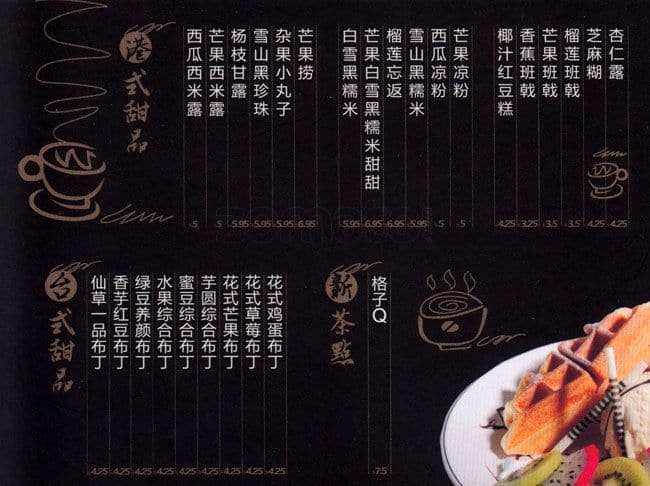 港式甜品
西瓜西米露 5
芒果西米露 5
杨枝甘露 5.95
雪山黑珍珠 5.95
杂果小丸子 5.95
芒果捞 6.95
白雪黑糯米 5.95
芒果白雪黑糯米甜甜 6.95
榴莲忘返 5.95
雪山黑糯米 5.95
西瓜凉粉 5
芒果凉粉 5
椰汁红豆糕 4.25
香蕉班戟 3.25
芒果班戟 3.5
榴莲班戟 3.5
芝麻糊 4.25
杏仁露 4.25
台式甜品
仙草一品布丁 4.25
香芋红豆布丁 4.25
绿豆养颜布丁 4.25
水果综合布丁 4.25
蜜豆综合布丁 4.25
芋圆综合布丁 4.25
花式芒果布丁 4.25
花式草莓布丁 4.25
花式鸡蛋布丁 4.25
新茶點
格子Q 7.5